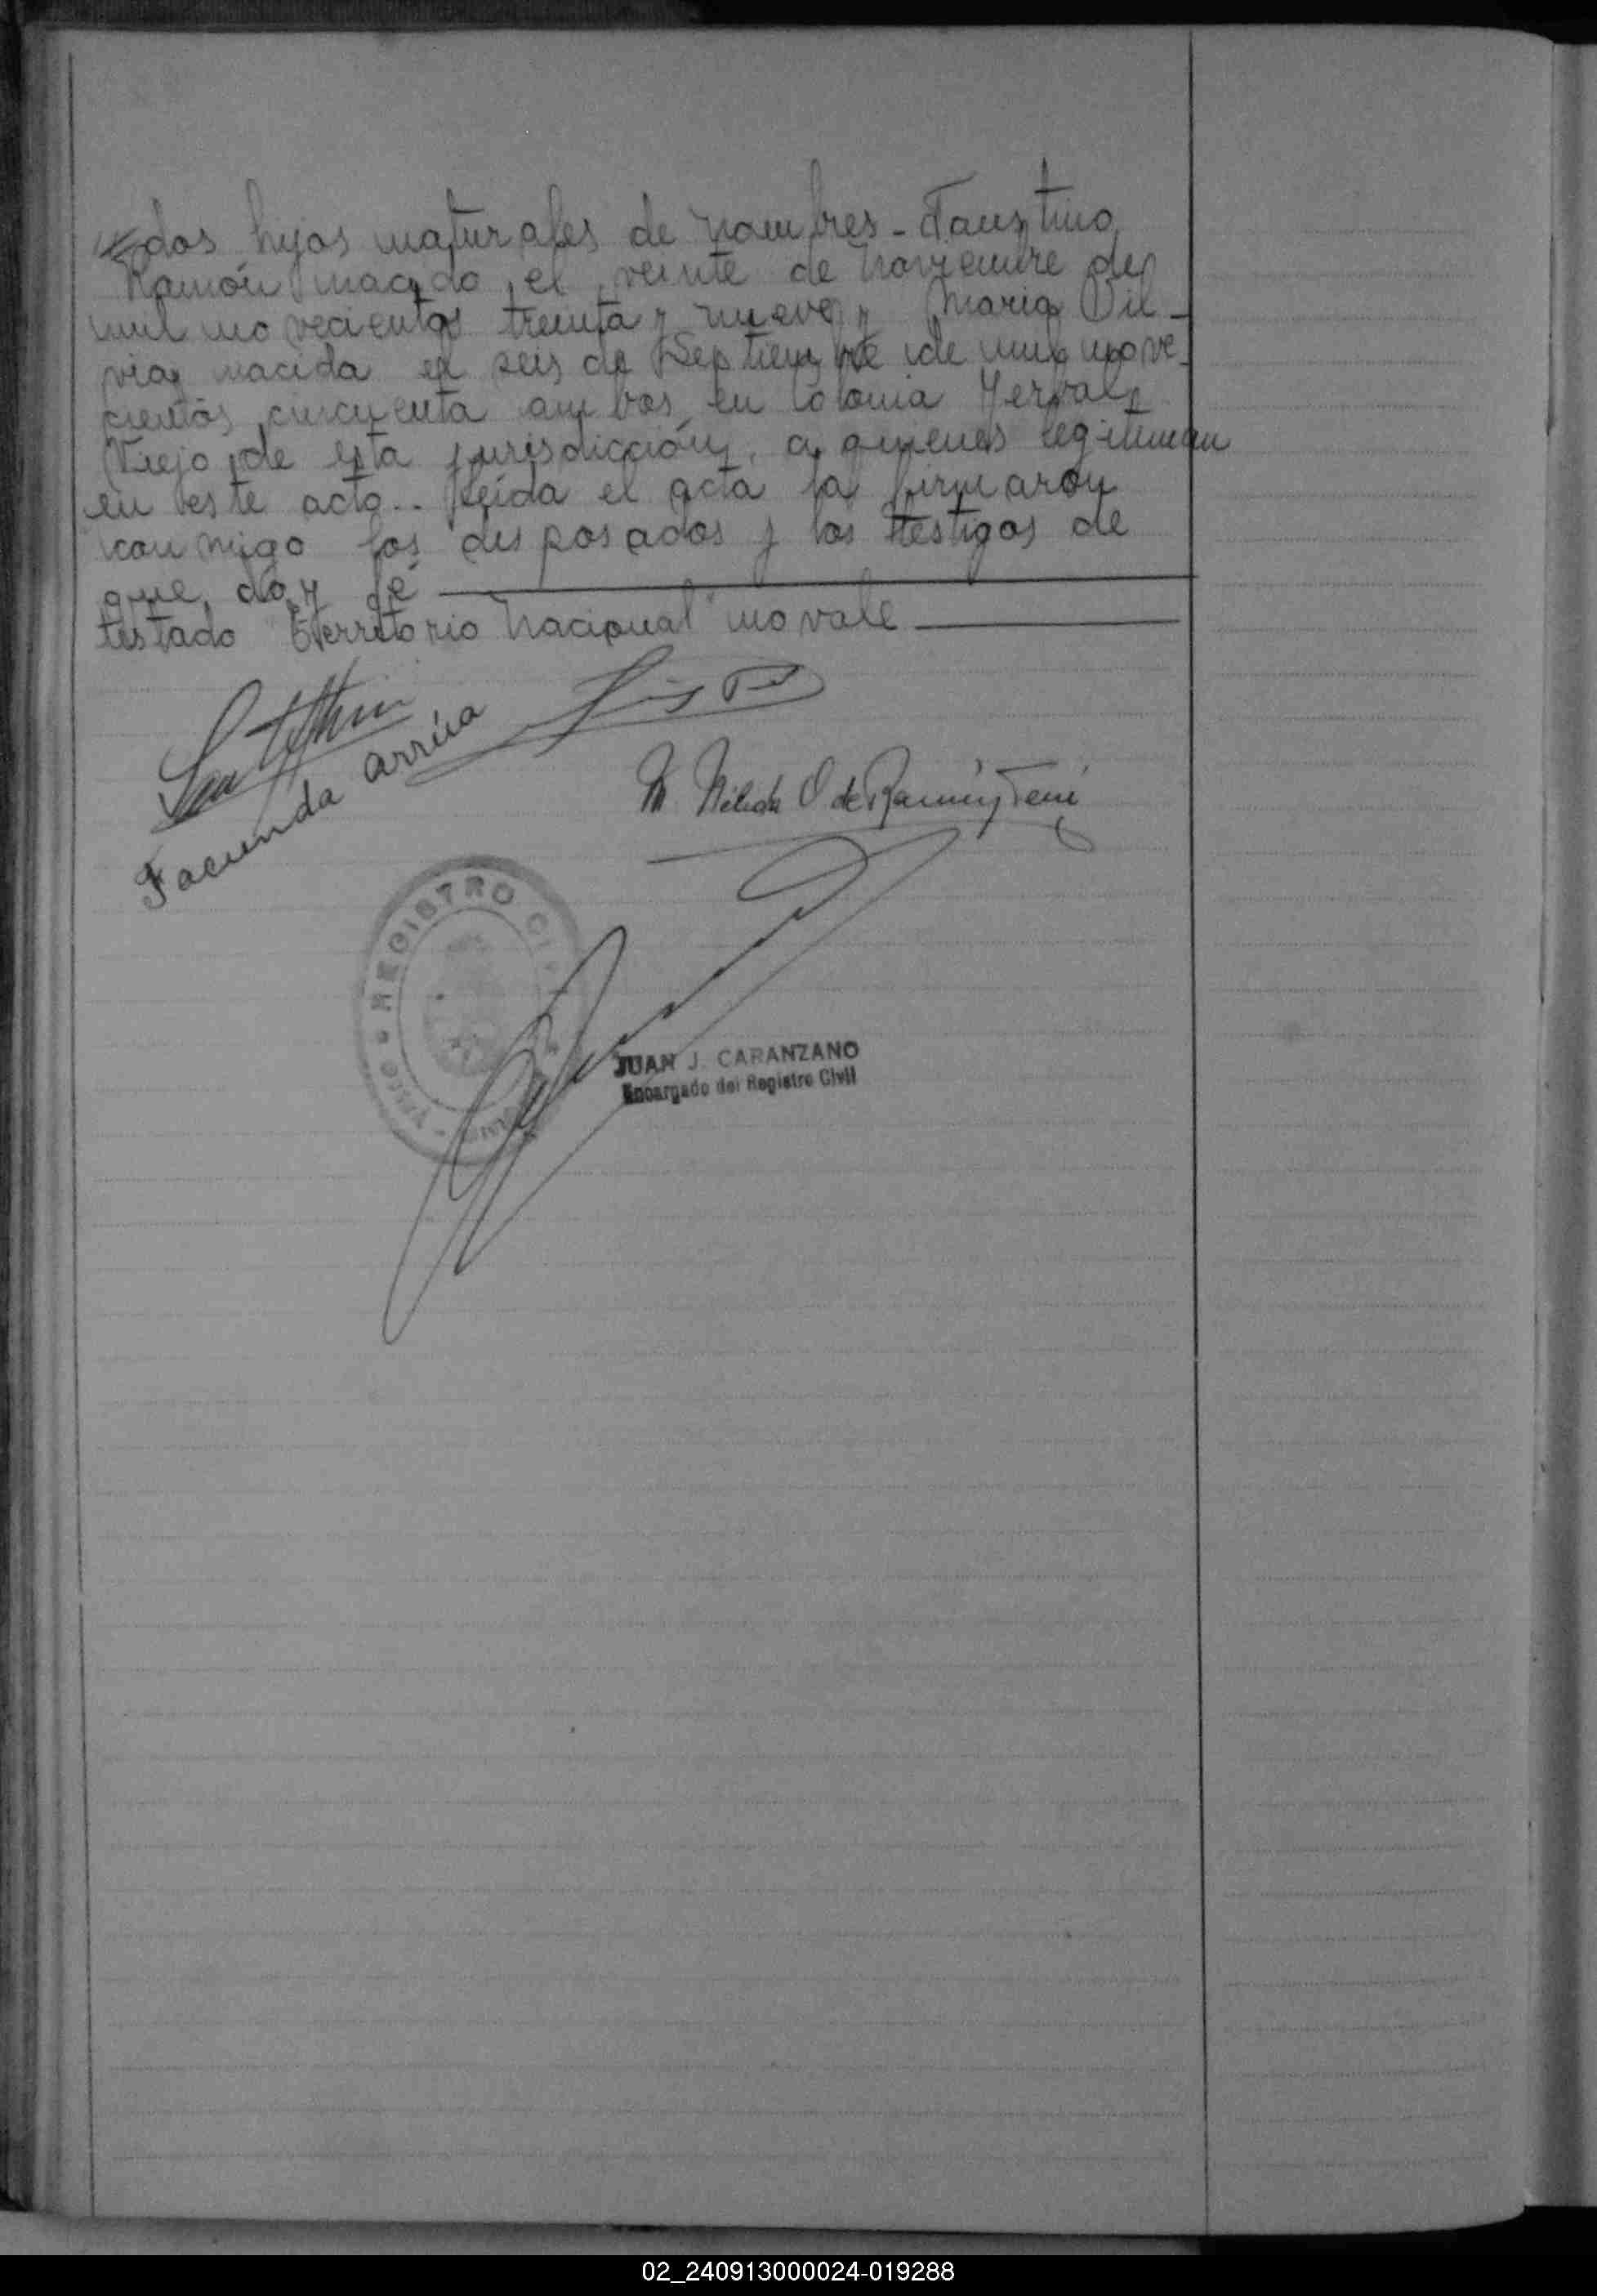 dos hijos naturales de nombres - Faustino
Ramón nacido el veinte de Noviembre de
mil novecientos treinta y nueve y Maria Sil-
via nacida el seis de Septiembre de mil nove-
cientos cincuenta ambos en Colonia Yerbal
Viejo de esta jurisdicción, a quienes legitiman
en este acto.. Leída el acta la firmaron
conmigo los desposados y los testigos de
que doy fé
testado "territorio Nacional" no vale
Facunda Arrúa
REGISTRO CI
JUAN J. CARANZANO
Encargado del Registro Civil
02_240913000024-019288